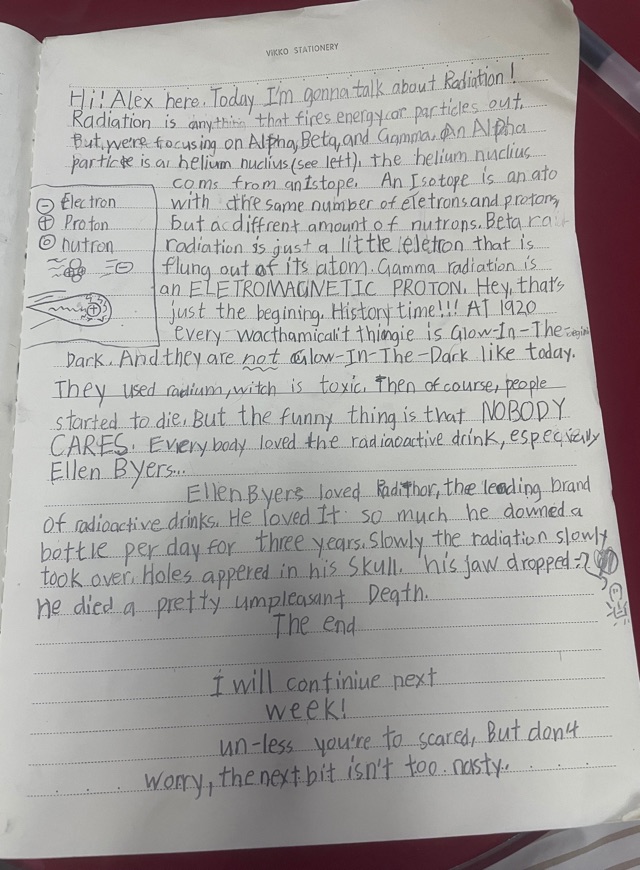 VIKKO STATIONERY
Hi! Alex here. Today I'm gonna talk about Radiation!
Radiation is anything that fires energy or particles out.
But, we're focusing on Alpha, Beta, and Gamma. An Alpha
particle is a helium nuclius (see left), the helium nuclius
coms from an Istope. An Isotope is an ato
with the same number of eletrons and protons,
but a diffrent amount of nutrons. Beta ra
radiation is just a little eletron that is
flung out of its atom. Gamma radiation is
an ELETROMAGNETIC PROTON. Hey, that's
just the begining. History time!!! At 1920
every thingie is Glow-In-The-
Dark. And they are not Glow-In-The-Dark like today.
They used radium, witch is toxic. Then of course, people
started to die. But the funny thing is that NOBODY
CARES. Everybody loved the radiaoactive drink, especially
Ellen Byers...
Ellen Byers loved Radithor, the leading brand
of radioactive drinks. He loved It so much he downed a
bottle per day for three years. Slowly the radiation slowly
took over. Holes appered in his skull. his jaw dropped =>
He died a pretty umpleasant Death.
The end
I will continiue next
week!
un-less you're to scared, But don't
worry, the next bit isn't too nasty..
- Electron
+ Proton
nutron